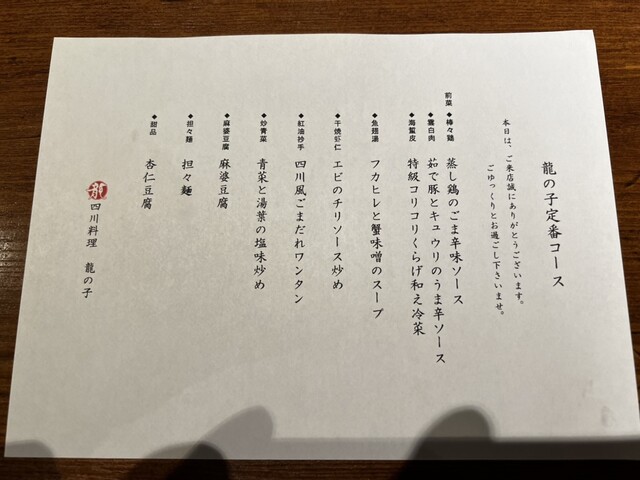 龍の子定番コース
本日は、ご来店誠にありがとうございます。
ごゆっくりとお過ごし下さいませ。
前菜 ◆棒々鶏 蒸し鶏のごま辛味ソース
◆雲白肉 茹で豚とキュウリのうま辛ソース
◆海蜇皮 特級コリコリくらげ和え冷菜
◆魚翅湯 フカヒレと蟹味噌のスープ
◆干焼虾仁 エビのチリソース炒め
◆紅油抄手 四川風ごまだれワンタン
◆炒青菜 青菜と湯葉の塩味炒め
◆麻婆豆腐 麻婆豆腐
◆担々麺 担々麺
◆甜品 杏仁豆腐
龍 四川料理 龍の子